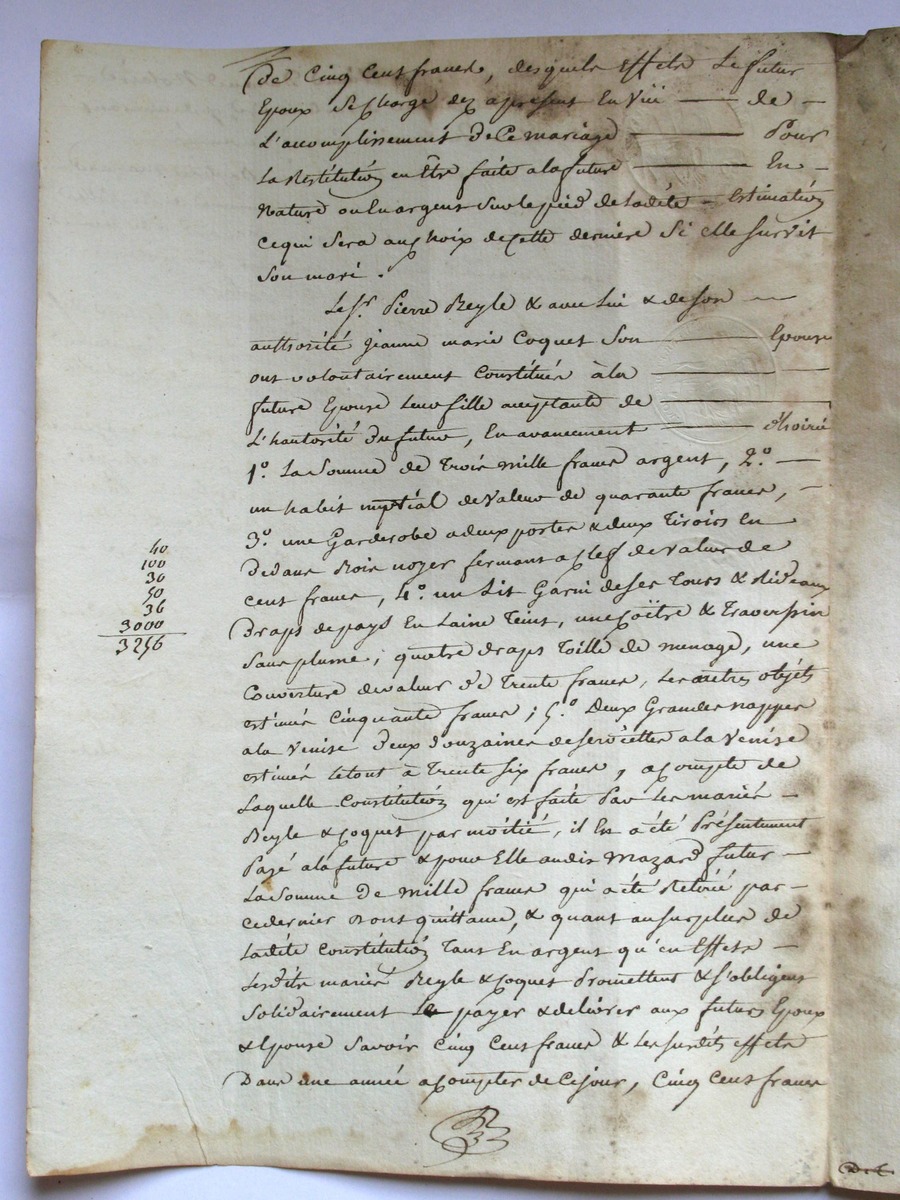 De Cinq Cent francs, desquels Effets Le futur
Epoux Se Charge dez apresent En Vüe — de —
L'accomplissement de Ce mariage — Pour
La Restitution en Etre faite ala future — En —
Nature ou En argent Sur le pied de ladite — Estimation
ce qui Sera au Choix de Cette derniere Si elle Survit
Son mari.
Le Sr. Pierre Reyle & avec Lui & de son —
authorité jeanne marie Coquet Son — Epouse
ont volontairement Constitués à la —
future Epouse Leur fille acceptante de —
L'hautorité du futur, En avancement — d'hoirie
1º. La Somme de Trois mille francs argent, 2º. —
un habit nuptial de Valeur de quarante francs, —
3º. une Garderobe a deux portes & deux Tiroirs En
dedans Bois noyer fermant a Clef de Valeur de
cent francs, 4º. un Lit Garni de Ses Tours & Rideaux
Draps de pays En Laine Teint, une Coëtre & Traversin
Sans plume; quatre draps Toille de menage, une
Couverture de valeur de Trente francs, Les autres objets
estimés Cinquante francs; 5.º Deux Grandes nappes
a la Venise deux douzaines de Serviettes a la Venise
estimés le tout à Trente Six francs, a Compte de
Laquelle Constitution qui est faite Par Les mariés —
Reyle & Coquet par moitié, il En a été Présentement
Payé a la future & pour Elle audit Mazard futur —
La Somme de Mille francs qui a été Retirée par —
ce dernier Dont quittance, & quant au Surplus de
Ladite Constitution Tant En argent qu'en Effets —
Lesdits mariés Reyle & Coquet Promettent & S'obligent
Solidairement Le payer & delivrer aux futurs Epoux
& Epouse Savoir Cinq Cent francs & Les Surdits effets
Dans une année a Compter de Ce jour, Cinq Cent francs
40
100
30
50
36
3000
3256